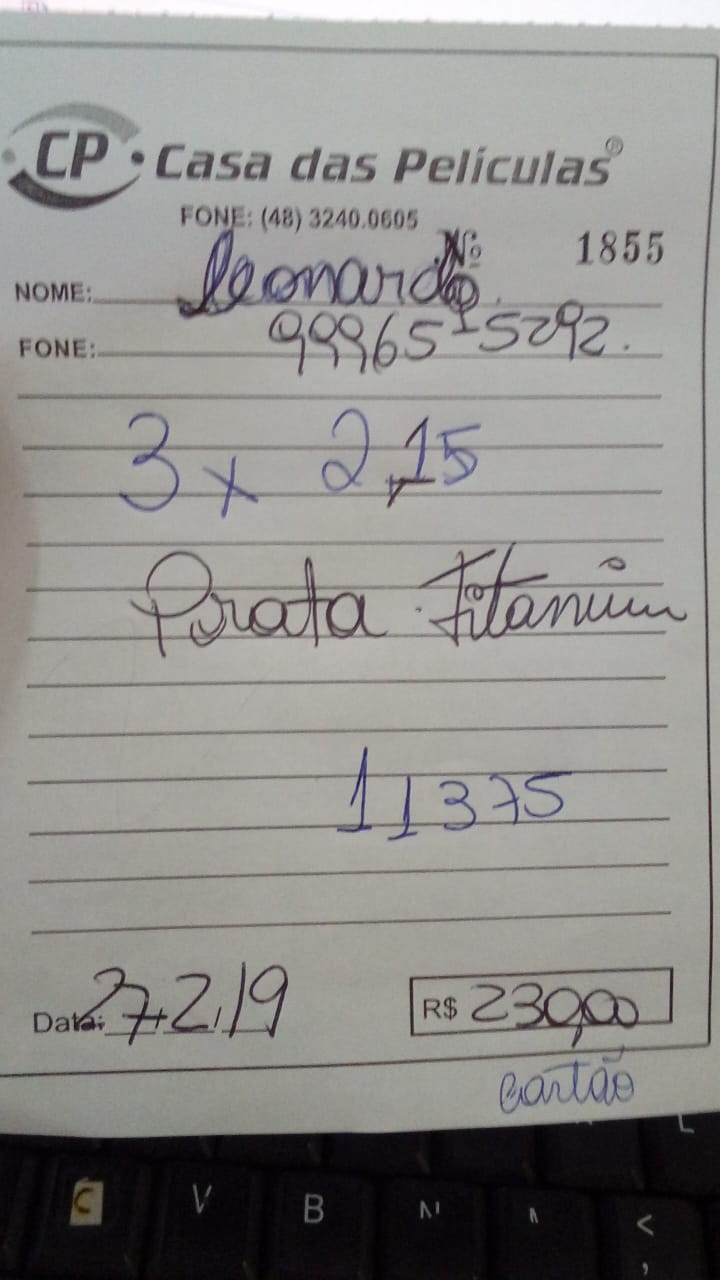 CP • Casa das Películas®
FONE: (48) 3240.0605
Nº 1855
NOME: Leonardo
FONE: 99965-5292.
3 x 2,15
Prata Titanium
11375
Data: 27/2/19
R$ 230,00
cartão
C V B N M <
,